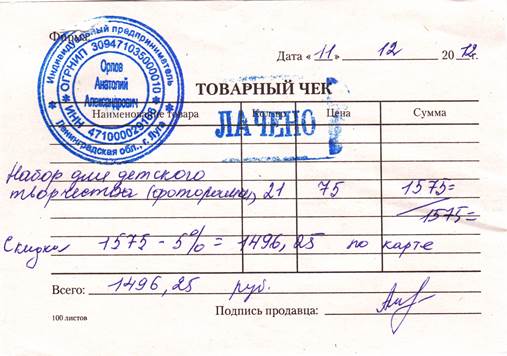 Форма
Дата «11» 12 2012г.
ТОВАРНЫЙ ЧЕК
Индивидуальный предприниматель
ОГРНИП 309471035000010
Орлов
Анатолий
Александрович
ИНН 4710000293
Ленинградская обл., г. Луга
ЛАЧЕНО
Наименование товара Кол-во Цена Сумма
Набор для детского
творчества (фоторамки) 21 75 1575=
1575=
Скидка 1575 - 5% = 1496,25 по карте
Всего: 1496,25 руб.
100 листов
Подпись продавца: